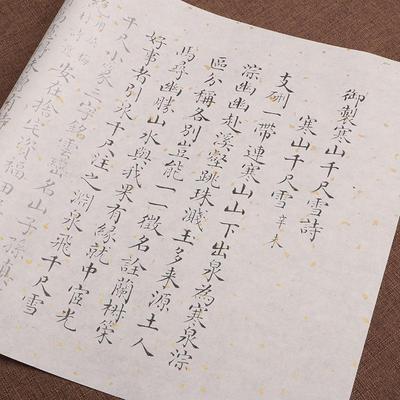 御製寒山千尺雪詩
寒山千尺雪 辛未
支硎一帶連寒山山下出泉為寒泉淙
淙幽幽赴溪壑跳珠濺玉多来源土人
區分稱各別豈能一一徵名詮蘭椒策
馬尋幽勝山水與我果有緣就中宦光
好事者引泉千尺注之淵泉飛千尺雪
千尺小篆三字銘雲巒名山子孫真
安在捨宅資福田